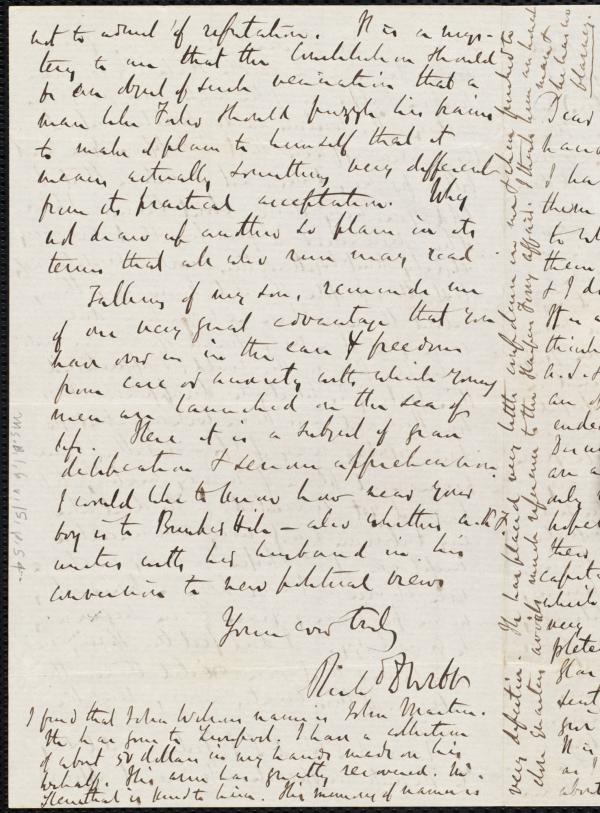 not to admit of refutation. It is a mys-
tery to me that the Constitution should
be an object of such veneration that a
man like should puzzle his brains
to make it plain to himself that it
means actually something very different
from its practical acceptation. Why
not draw up another so plain in its
terms that all who run may read
Talking of my son, reminds me
of one very great advantage that you
have over us in the ease & freedom
from care or anxiety with which young
men are launched on the sea of
life. Here it is a subject of grave
deliberation & serious apprehension.
I would like to know how near your
boy is to Bunker Hill — also whether
unites with her husband in his
conversion to new political views
Yours ever truly
Rich D Webb
I find that John Wilsons name is John Martin.
He has gone to Liverpool. I have a collection
of about 50 dollars in my hands made on his
behalf. His arm has greatly recovered. Mr.
is kind to him. His memory of names is
very defective. He has placed very little confidence in me & when pushed to
close quarters avoids much reference to the Harpers Ferry affair. I think him an honest
man &
he has no
blarney.
Dear
I have
them
to
them
& I d
It is
think
a.
an
ende
are a
only
hope
their
capit
which
very
plete
Gar
sent
It is
as I
about